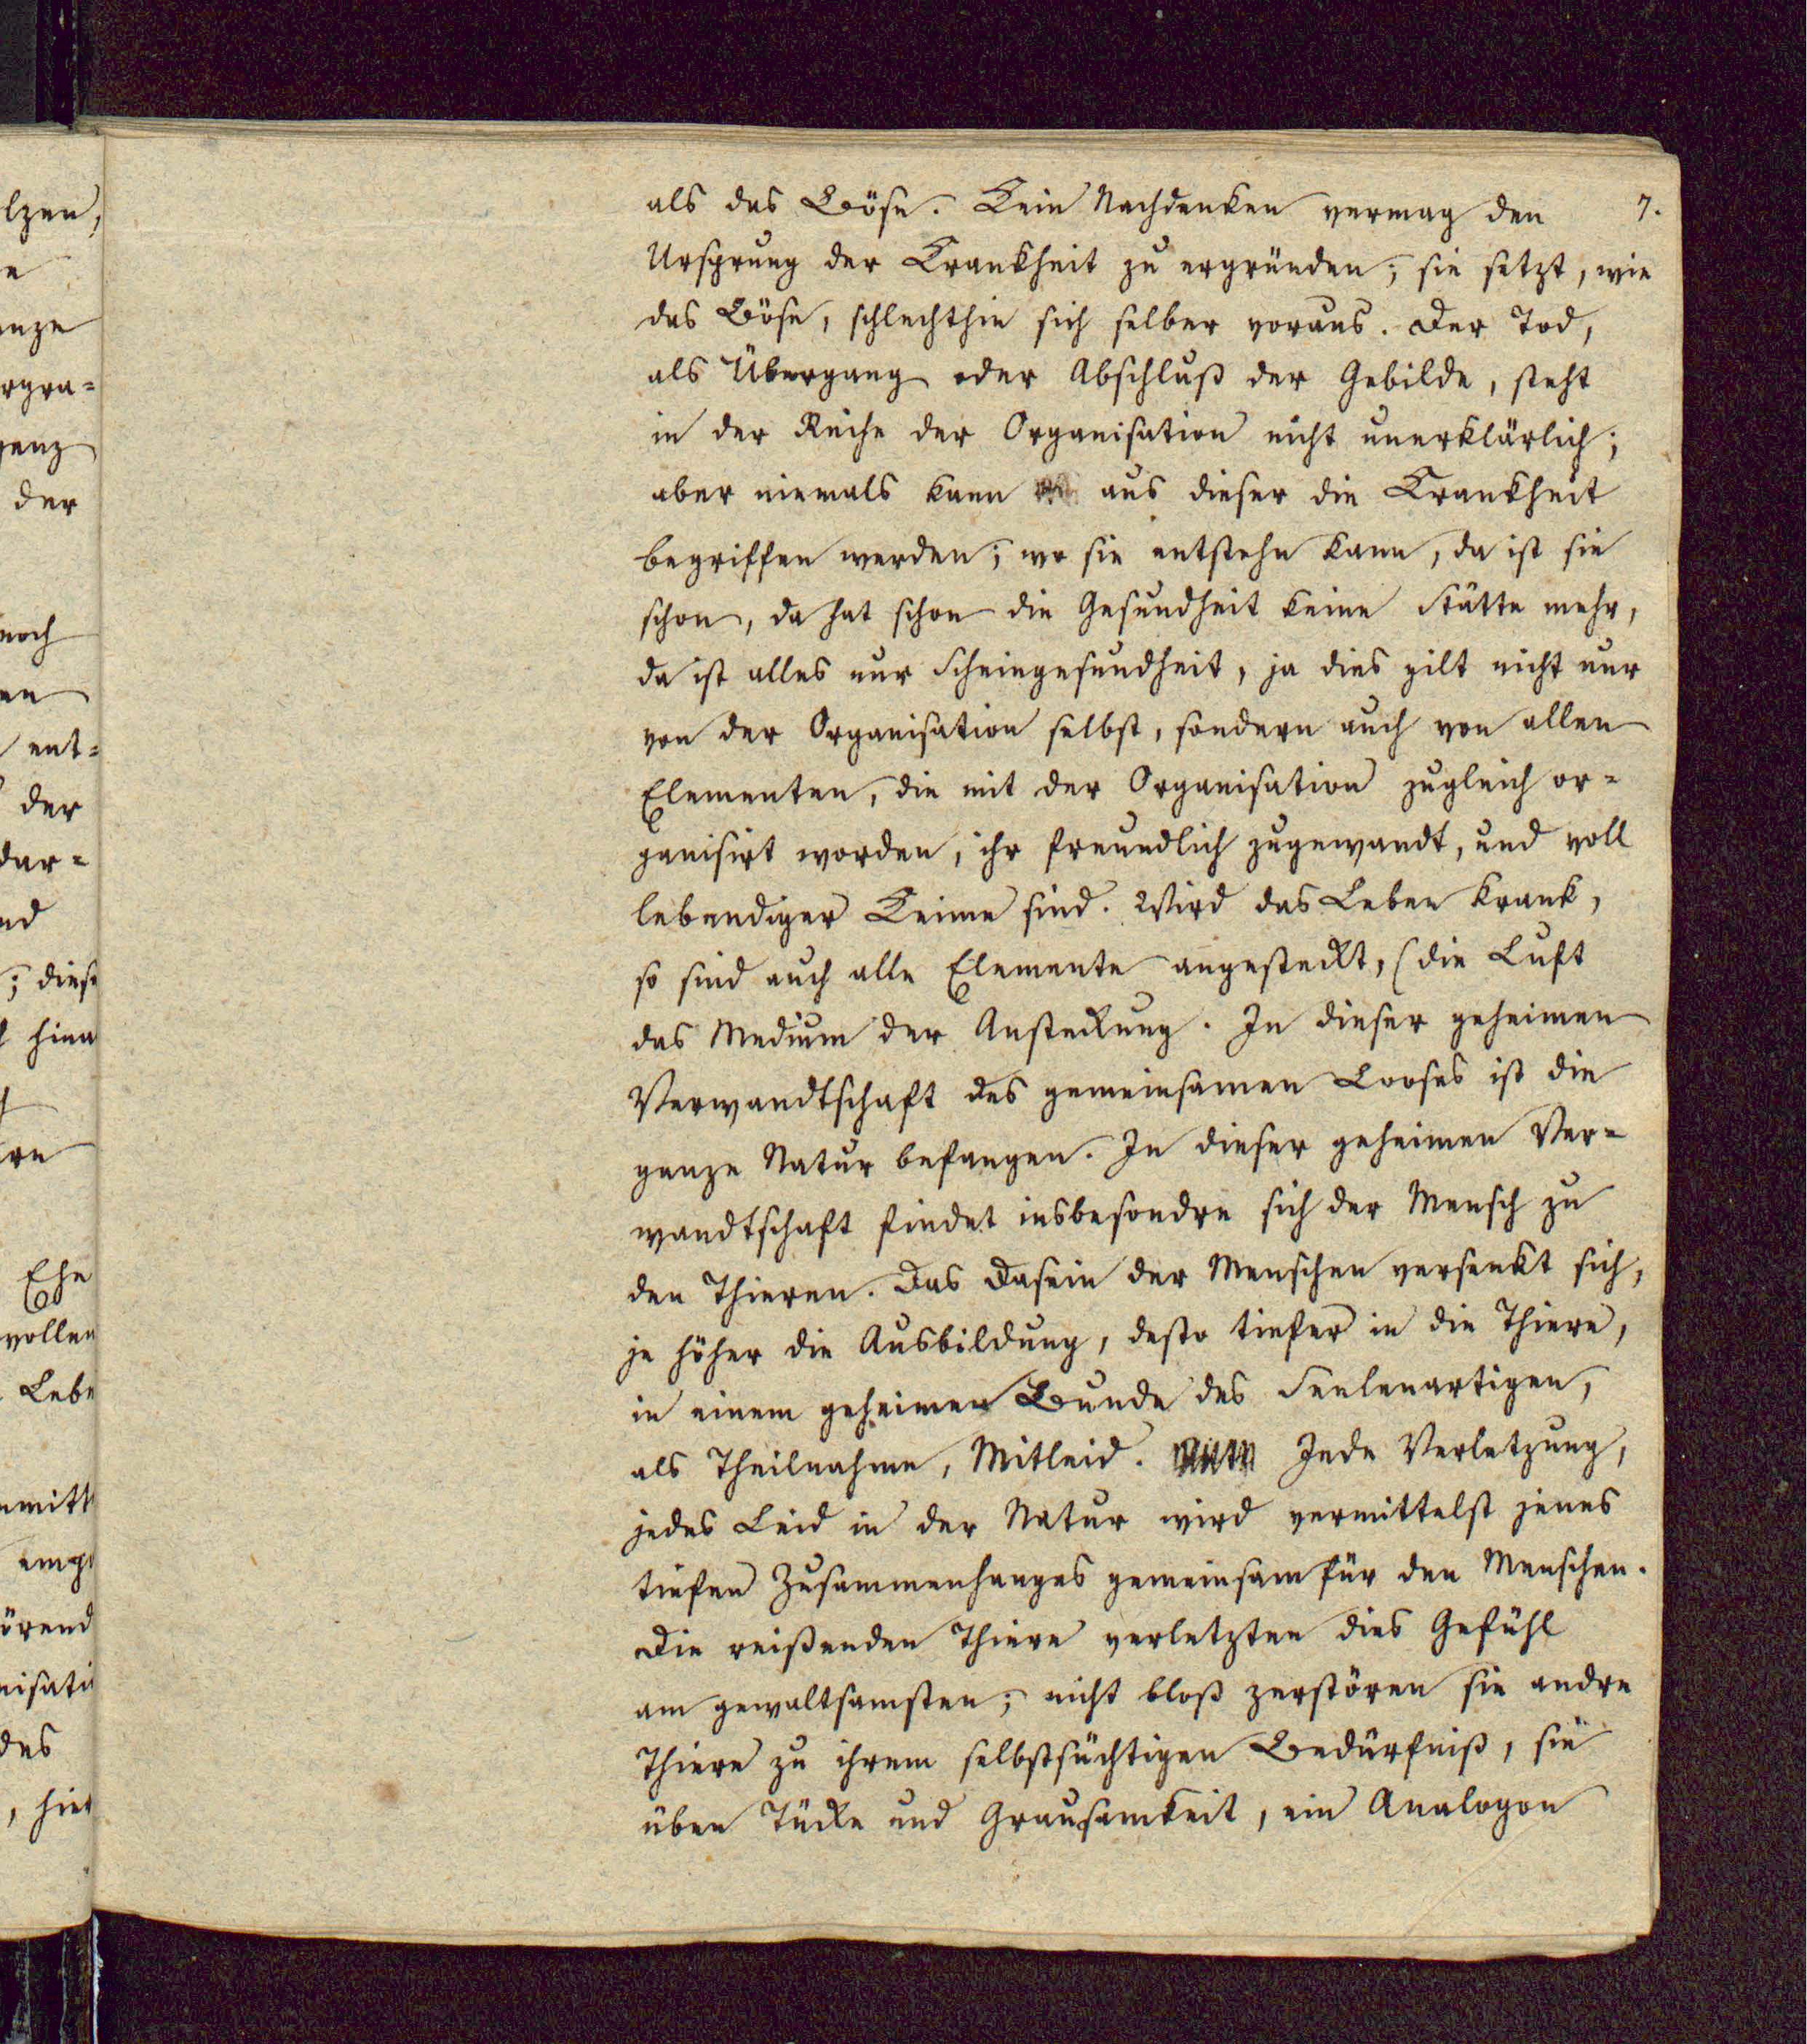 lzen,
e
anze
rgra-
ganz
der
noch
en
ent-
der
dar-
nd
; diese
hina
Ehe
wollen
Lebe
nmitt
emp
örend
nisati
des
, hier
als das Böse. Kein Nachdenken vermag den 7.
Ursprung der Krankheit zu ergründen; sie setzt, wie
das Böse, schlechthin sich selber voraus. Der Tod,
als Übergang oder Abschluß der Gebilde, steht
in der Reihe der Organisation nicht unerklärlich;
aber niemals kann aus dieser die Krankheit
begriffen werden; wo sie entstehn kann, da ist sie
schon, da hat schon die Gesundheit keine Stätte mehr,
da ist alles nur Scheingesundheit, ja dies gilt nicht nur
von der Organisation selbst, sondern auch von allen
Elementen, die mit der Organisation zugleich or-
ganisirt worden, ihr freundlich zugewandt, und voll
lebendiger Keime sind. Wird das Leben krank,
so sind auch alle Elemente angesteckt, (die Luft
das Medium der Ansteckung. In dieser geheimen
Verwandtschaft des gemeinsamen Looses ist die
ganze Natur befangen. In dieser geheimen Ver-
wandtschaft findet insbesondre sich der Mensch zu
den Thieren. Das Dasein der Menschen versenkt sich,
je höher die Ausbildung, desto tiefer in die Thiere,
in einem geheimen Bunde des Seelenartigen,
als Theilnahme, Mitleid. Jede Verletzung,
jedes Leid in der Natur wird vermittelst jenes
tiefen Zusammenhanges gemeinsam für den Menschen.
Die reißenden Thiere verletzten dies Gefühl
am gewaltsamsten; nicht bloß zerstören sie andre
Thiere zu ihrem selbstsüchtigen Bedürfniß, sie
üben Tücke und Grausamkeit, ein Analogon